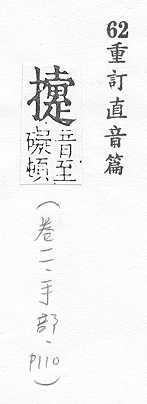 62重訂直音篇
音至
礙頓
(卷二·手部·P110)